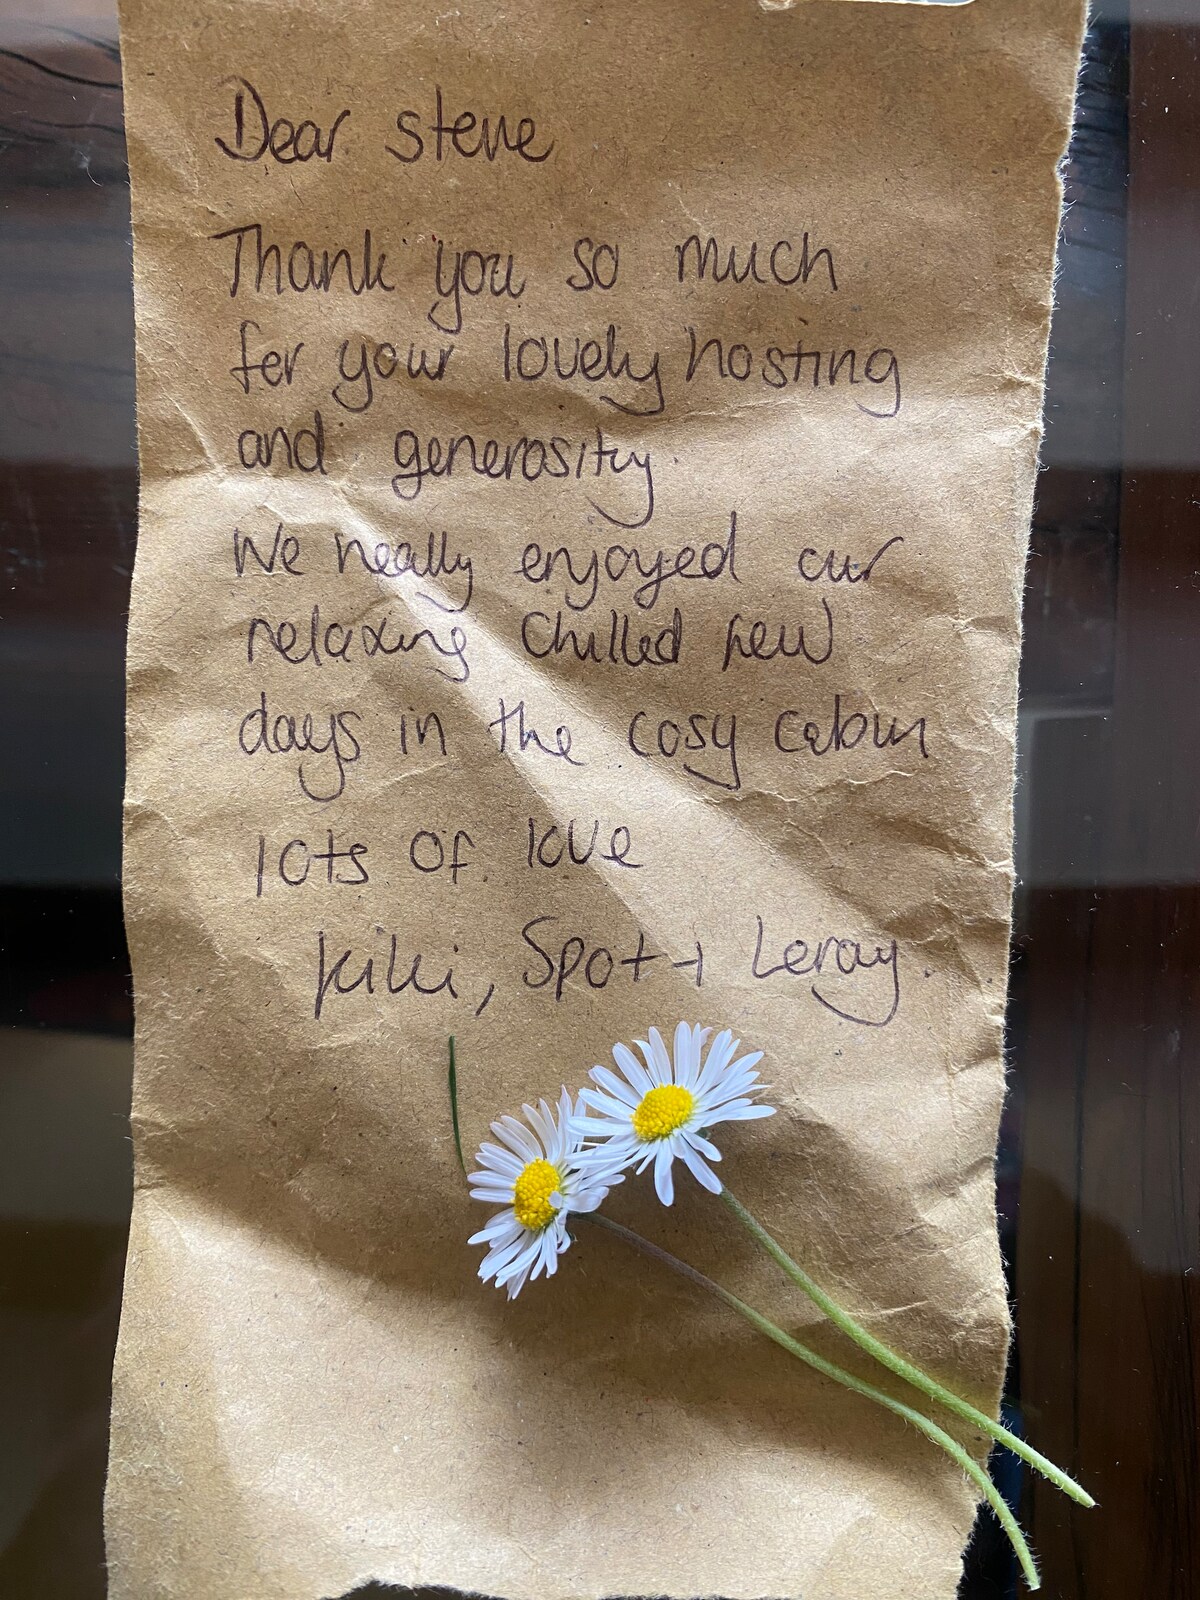 Dear steve
Thank you so much
for your lovely hosting
and generosity.
We really enjoyed our
relaxing chilled few
days in the cosy cabin
lots of love
Kiki, Spot + Leroy.